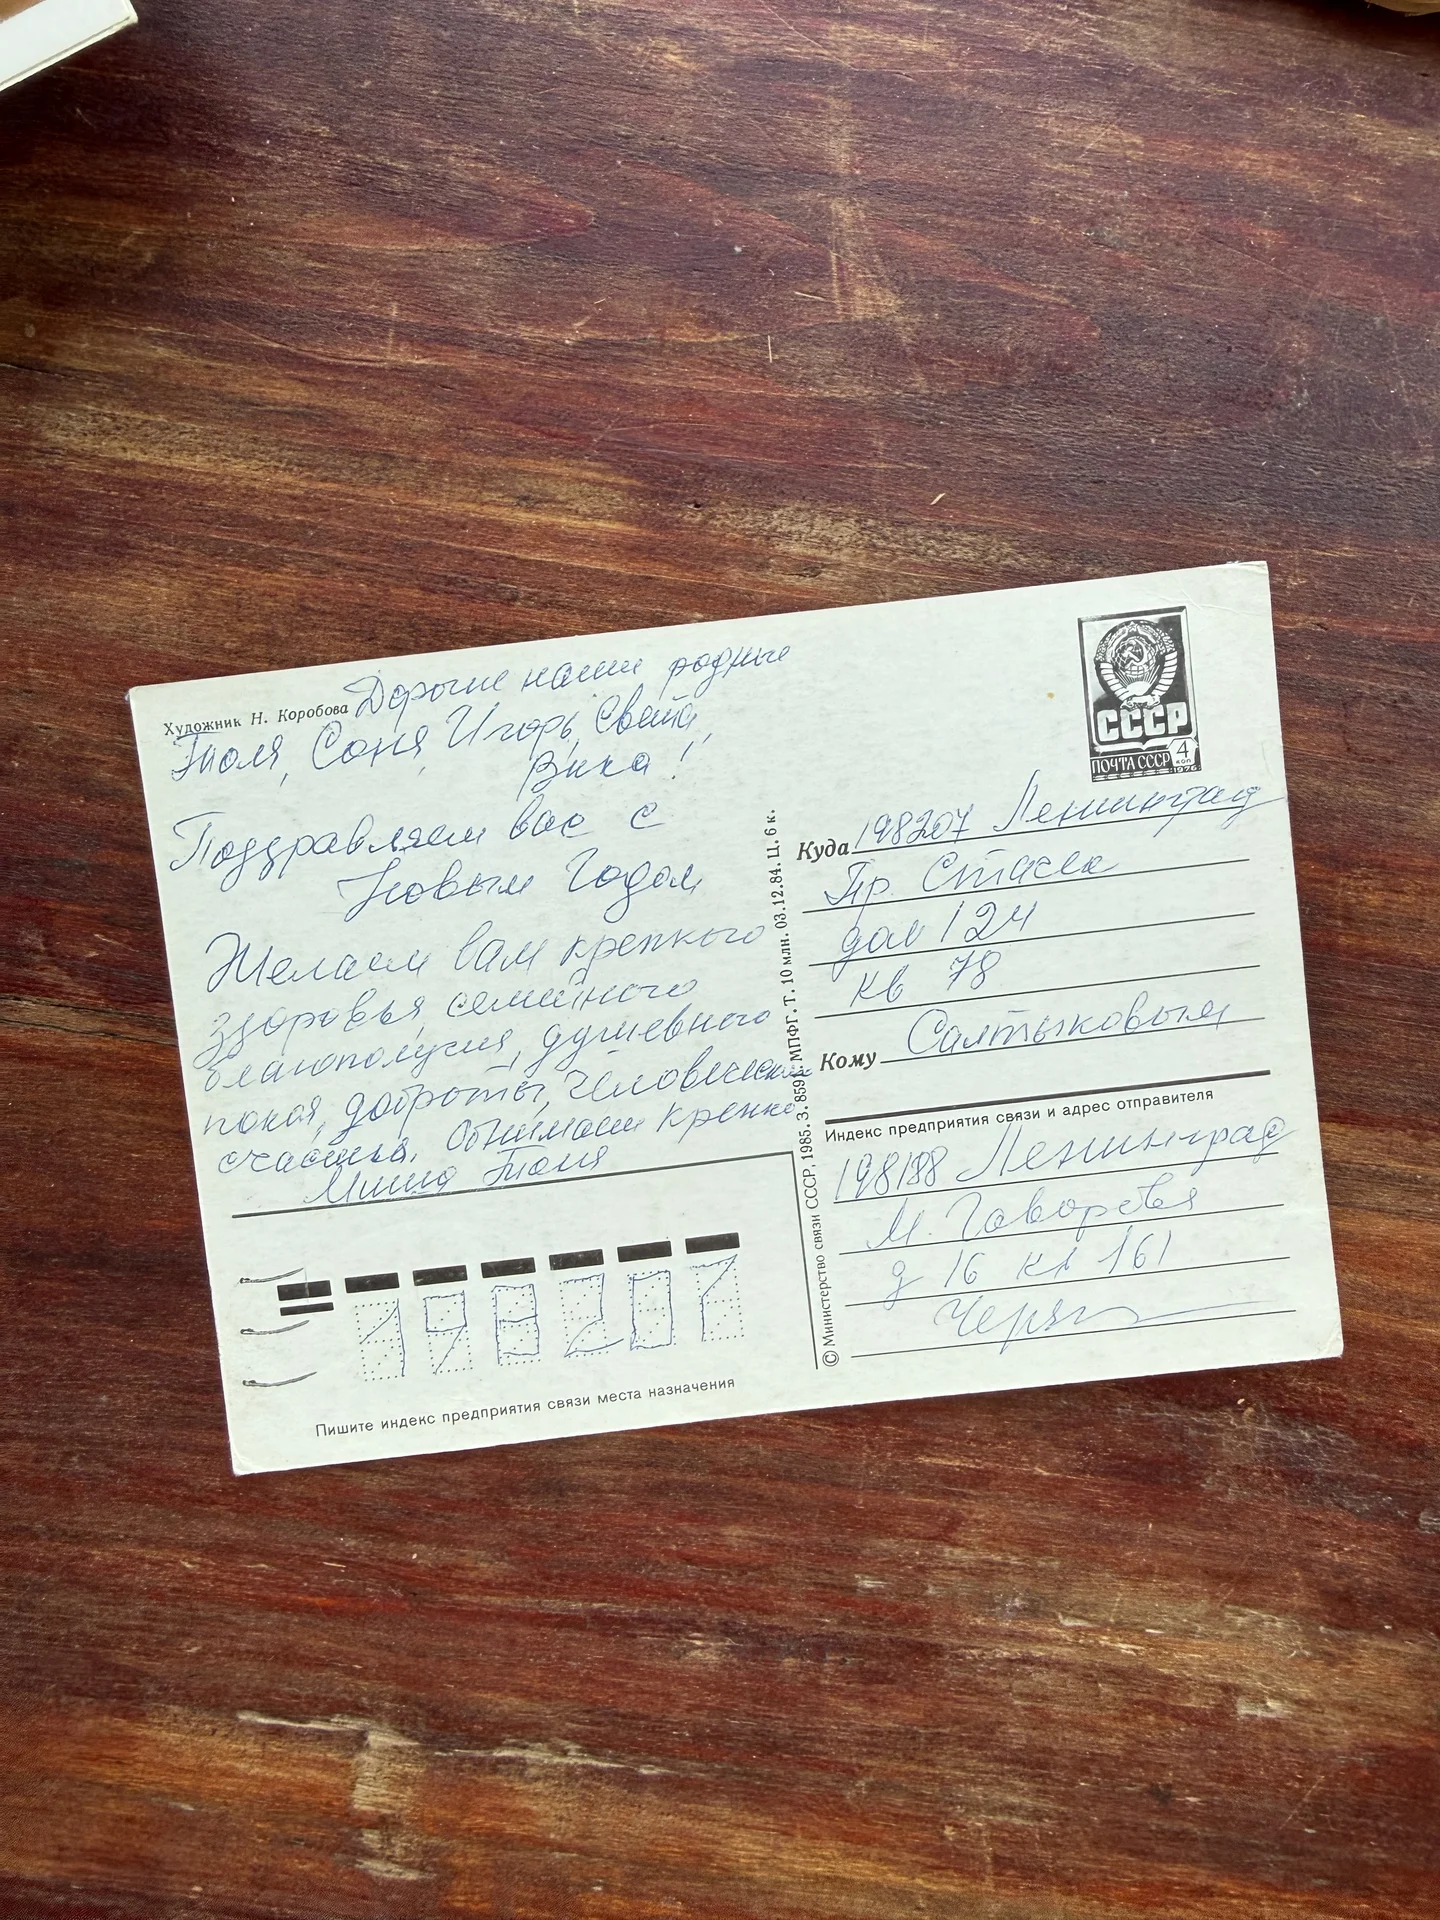 Художник Н. Коробова
Дорогие наши родные
Толя, Соня, Игорь, Света,
Вика!
Поздравляем вас с
Новым Годом
Желаем вам крепкого
здоровья, семейного
благополучия, душевного
покоя, доброты, человеческого
счастья. Обнимаем крепко
Толя
Пишите индекс предприятия связи места назначения
198207
© Министерство связи СССР, 1985. З. 859 МПФГ. Т. 10 млн. 03.12.84. Ц. 6 к.
СССР
ПОЧТА СССР 4 коп
1976
Куда 198207 Ленинград
Пр. Стачек
дом 124
кв 78
Кому Салтыковым
Индекс предприятия связи и адрес отправителя
198188 Ленинград
М. Говорова
д 16 кв 161